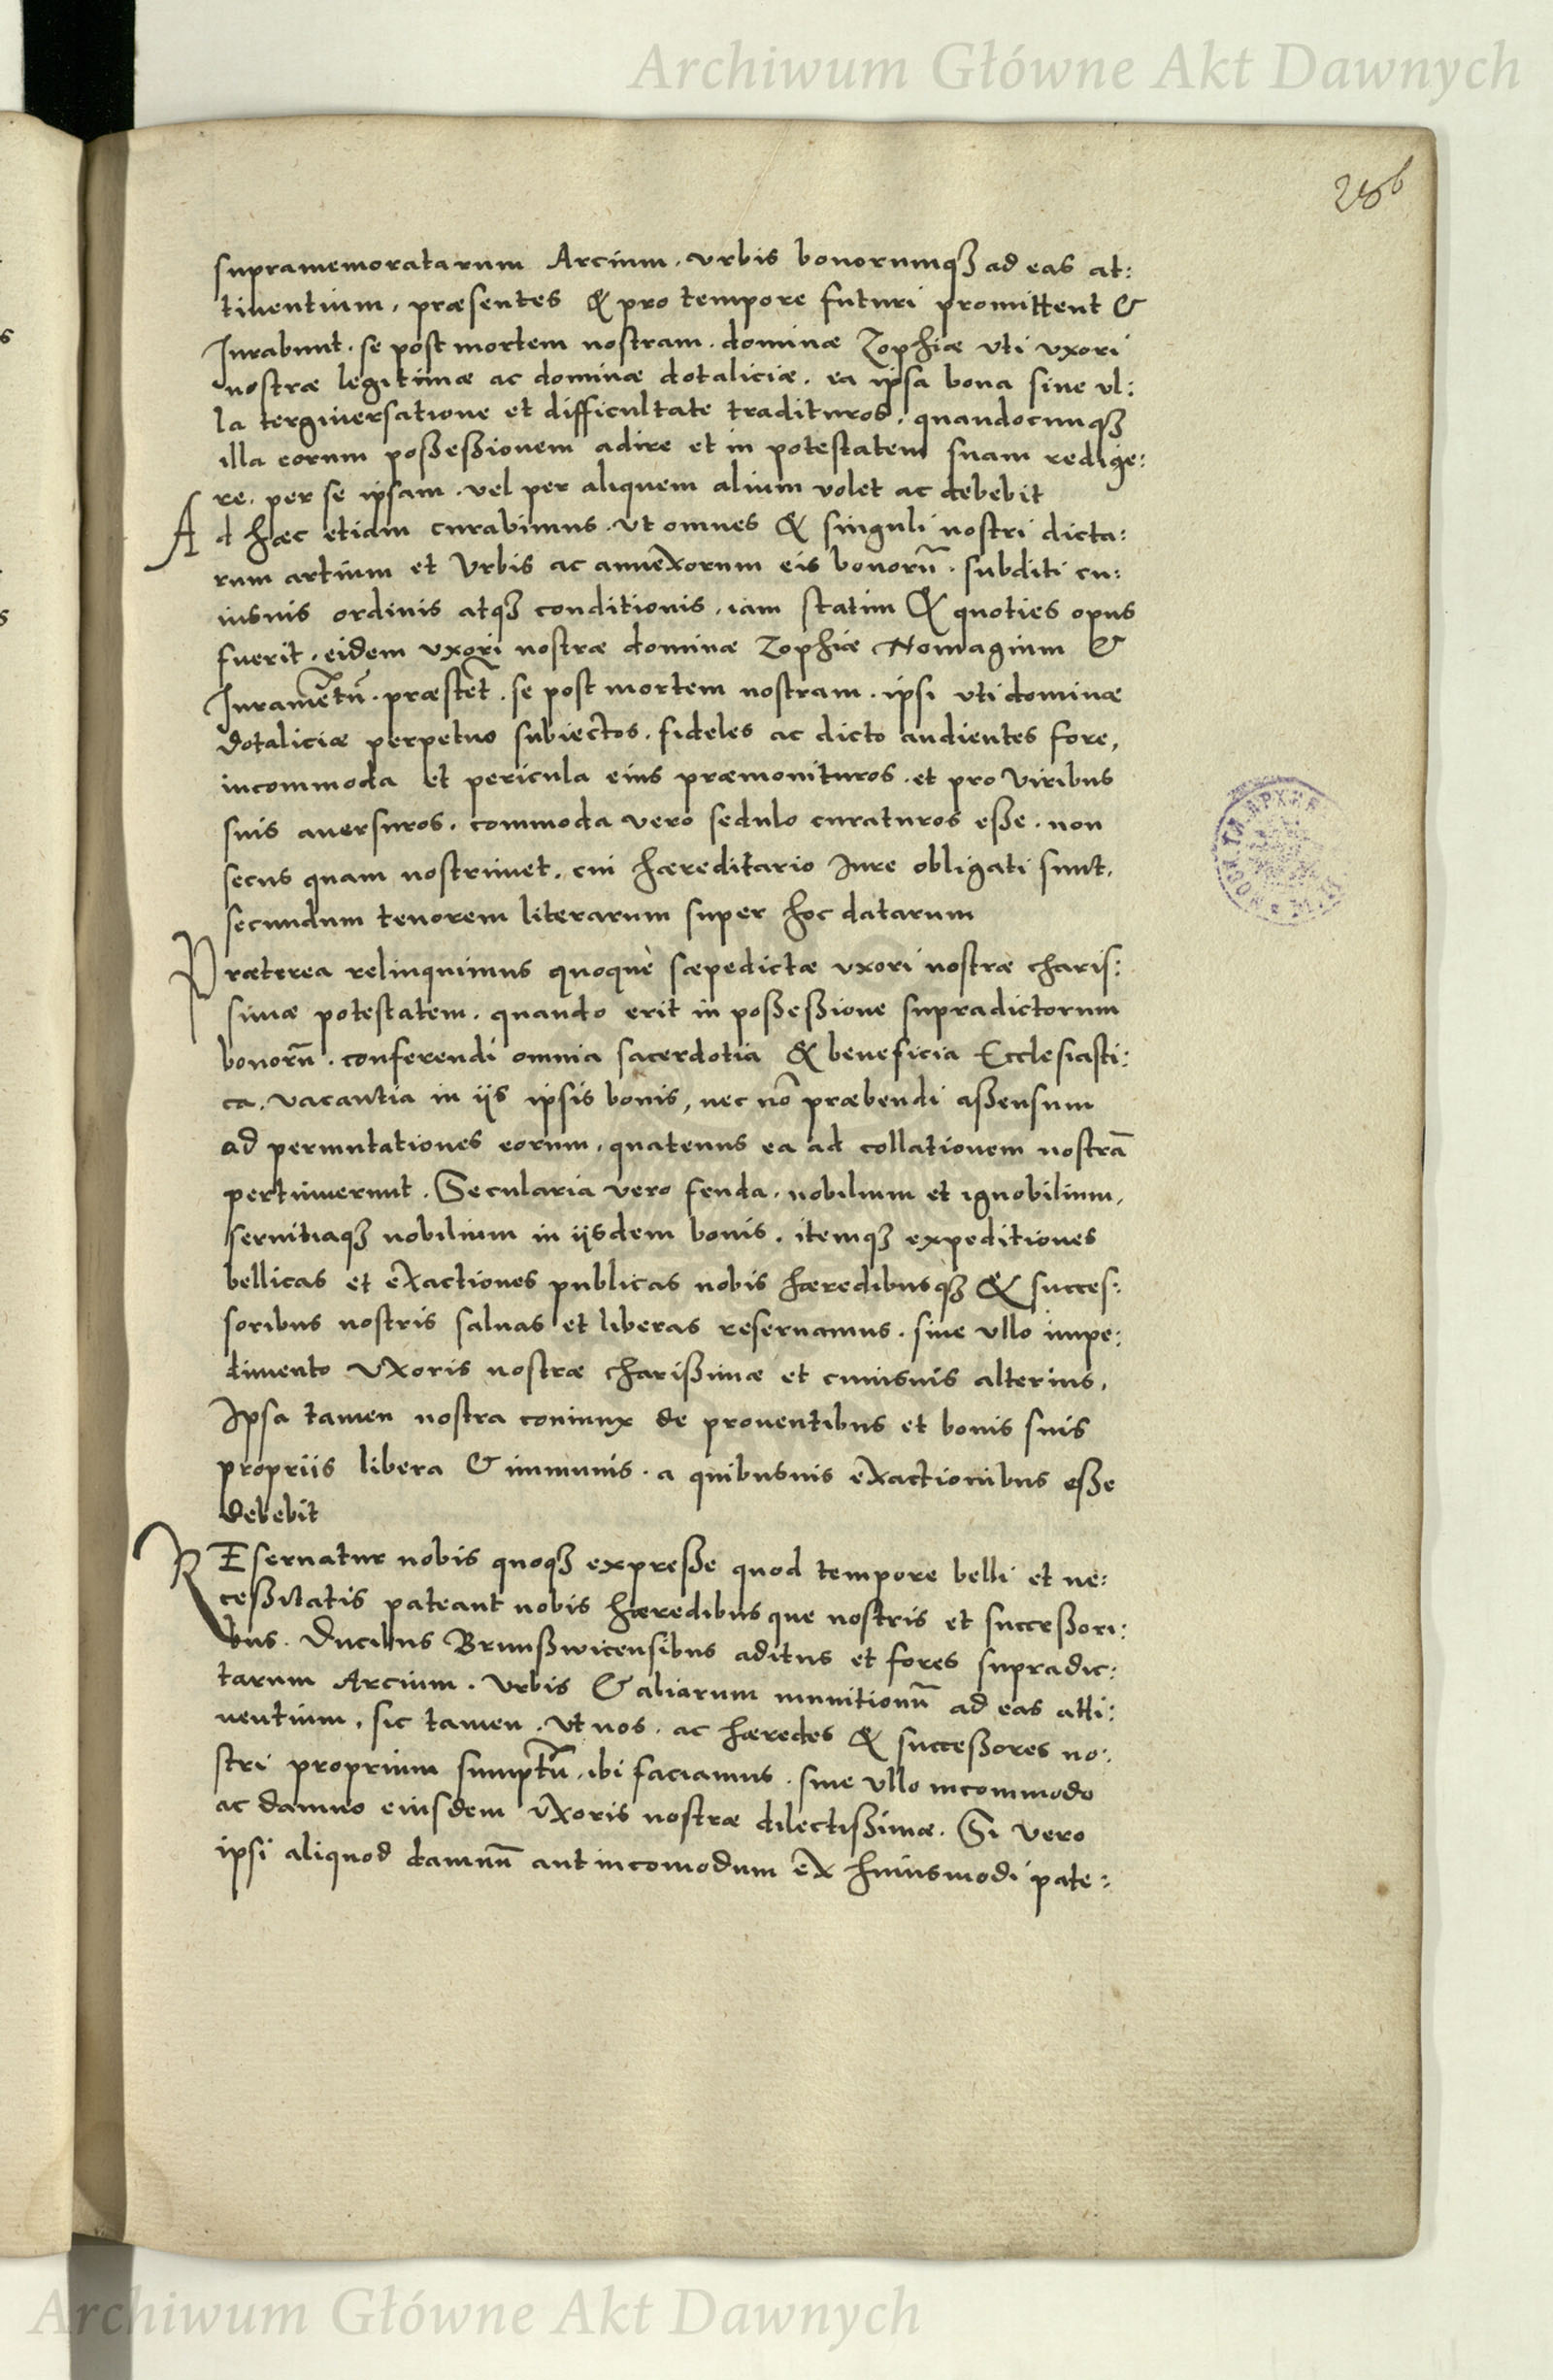 Archiwum Główne Akt Dawnych
supramemoratarum Arcium . vrbis bonorumqꝫ ad eas at:
tinentium, præsentes & pro tempore futuri promittent &
Jurabunt . se post mortem nostram . dominæ Zophiæ vti vxori
nostræ legitimæ ac dominæ dotaliciæ . ea ipsa bona sine vl:
la tergiuersatione et difficultate tradituros, quandocunqꝫ
illa eorum poßeßionem adire et in potestatem suam redige:
re, per se ipsam . vel per aliquem alium volet ac debebit
Ad hæc etiam curabimus . vt omnes & singuli nostri dicta:
rum artium et Vrbis ac annexorum eis bonorū . subditi cu:
iusuis ordinis atqꝫ conditionis, iam statim & quoties opus
fuerit, eidem vxori nostræ dominæ Zophiæ Homagium &
Juramētū . præstēt . se post mortem nostram . ipsi vti dominæ
dotaliciæ perpetuo subiectos, fideles ac dicto audientes fore,
incommoda et pericula eius præmonituros . et pro viribus
suis auersuros, commoda vero sedulo curaturos eße . non
secus quam nostrimet, cui hæreditario Jure obligati sunt,
secundum tenorem literarum super hoc datarum
Præterea relinquimus quoquè sæpedictæ vxori nostræ charis:
simæ potestatem . quando erit in poßeßione supradictorum
bonorū . conferendi omnia sacerdotia & beneficia Ecclesiasti:
ca, vacantia in ijs ipsis bonis, nec nō præbendi aßensum
ad permutationes eorum, quatenus ea ad collationem nostrā
pertinuerunt . Secularia vero feuda, nobilium et ignobilium,
seruitiaqꝫ nobilium in ijsdem bonis, itemqꝫ expeditiones
bellicas et exactiones publicas nobis hæredibusqꝫ & succes:
soribus nostris saluas et liberas reseruamus . sine vllo impe:
dimento vxoris nostræ charißimæ et cuiusuis alterius,
Ipsa tamen nostra coniunx de prouentibus et bonis suis
propriis libera & immunis . a quibusuis exactionibus eße
debebit
REseruatur nobis quoqꝫ expreße quod tempore belli et ne:
ceßitatis pateant nobis hæredibus que nostris et succeßori:
bus . Ducibus Brunßwicensibus aditus et fores supradic:
tarum Arcium . Vrbis & aliarum munitionū ad eas atti:
nentium, sic tamen . vt nos . ac hæredes & succeßores no:
stri proprium sumptū, ibi faciamus . sine vllo incommodo
ac damno eiusdem vxoris nostræ dilectißimæ . Si vero
ipsi aliquod damnū aut incomodum ex huiusmodi pate:
Archiwum Główne Akt Dawnych